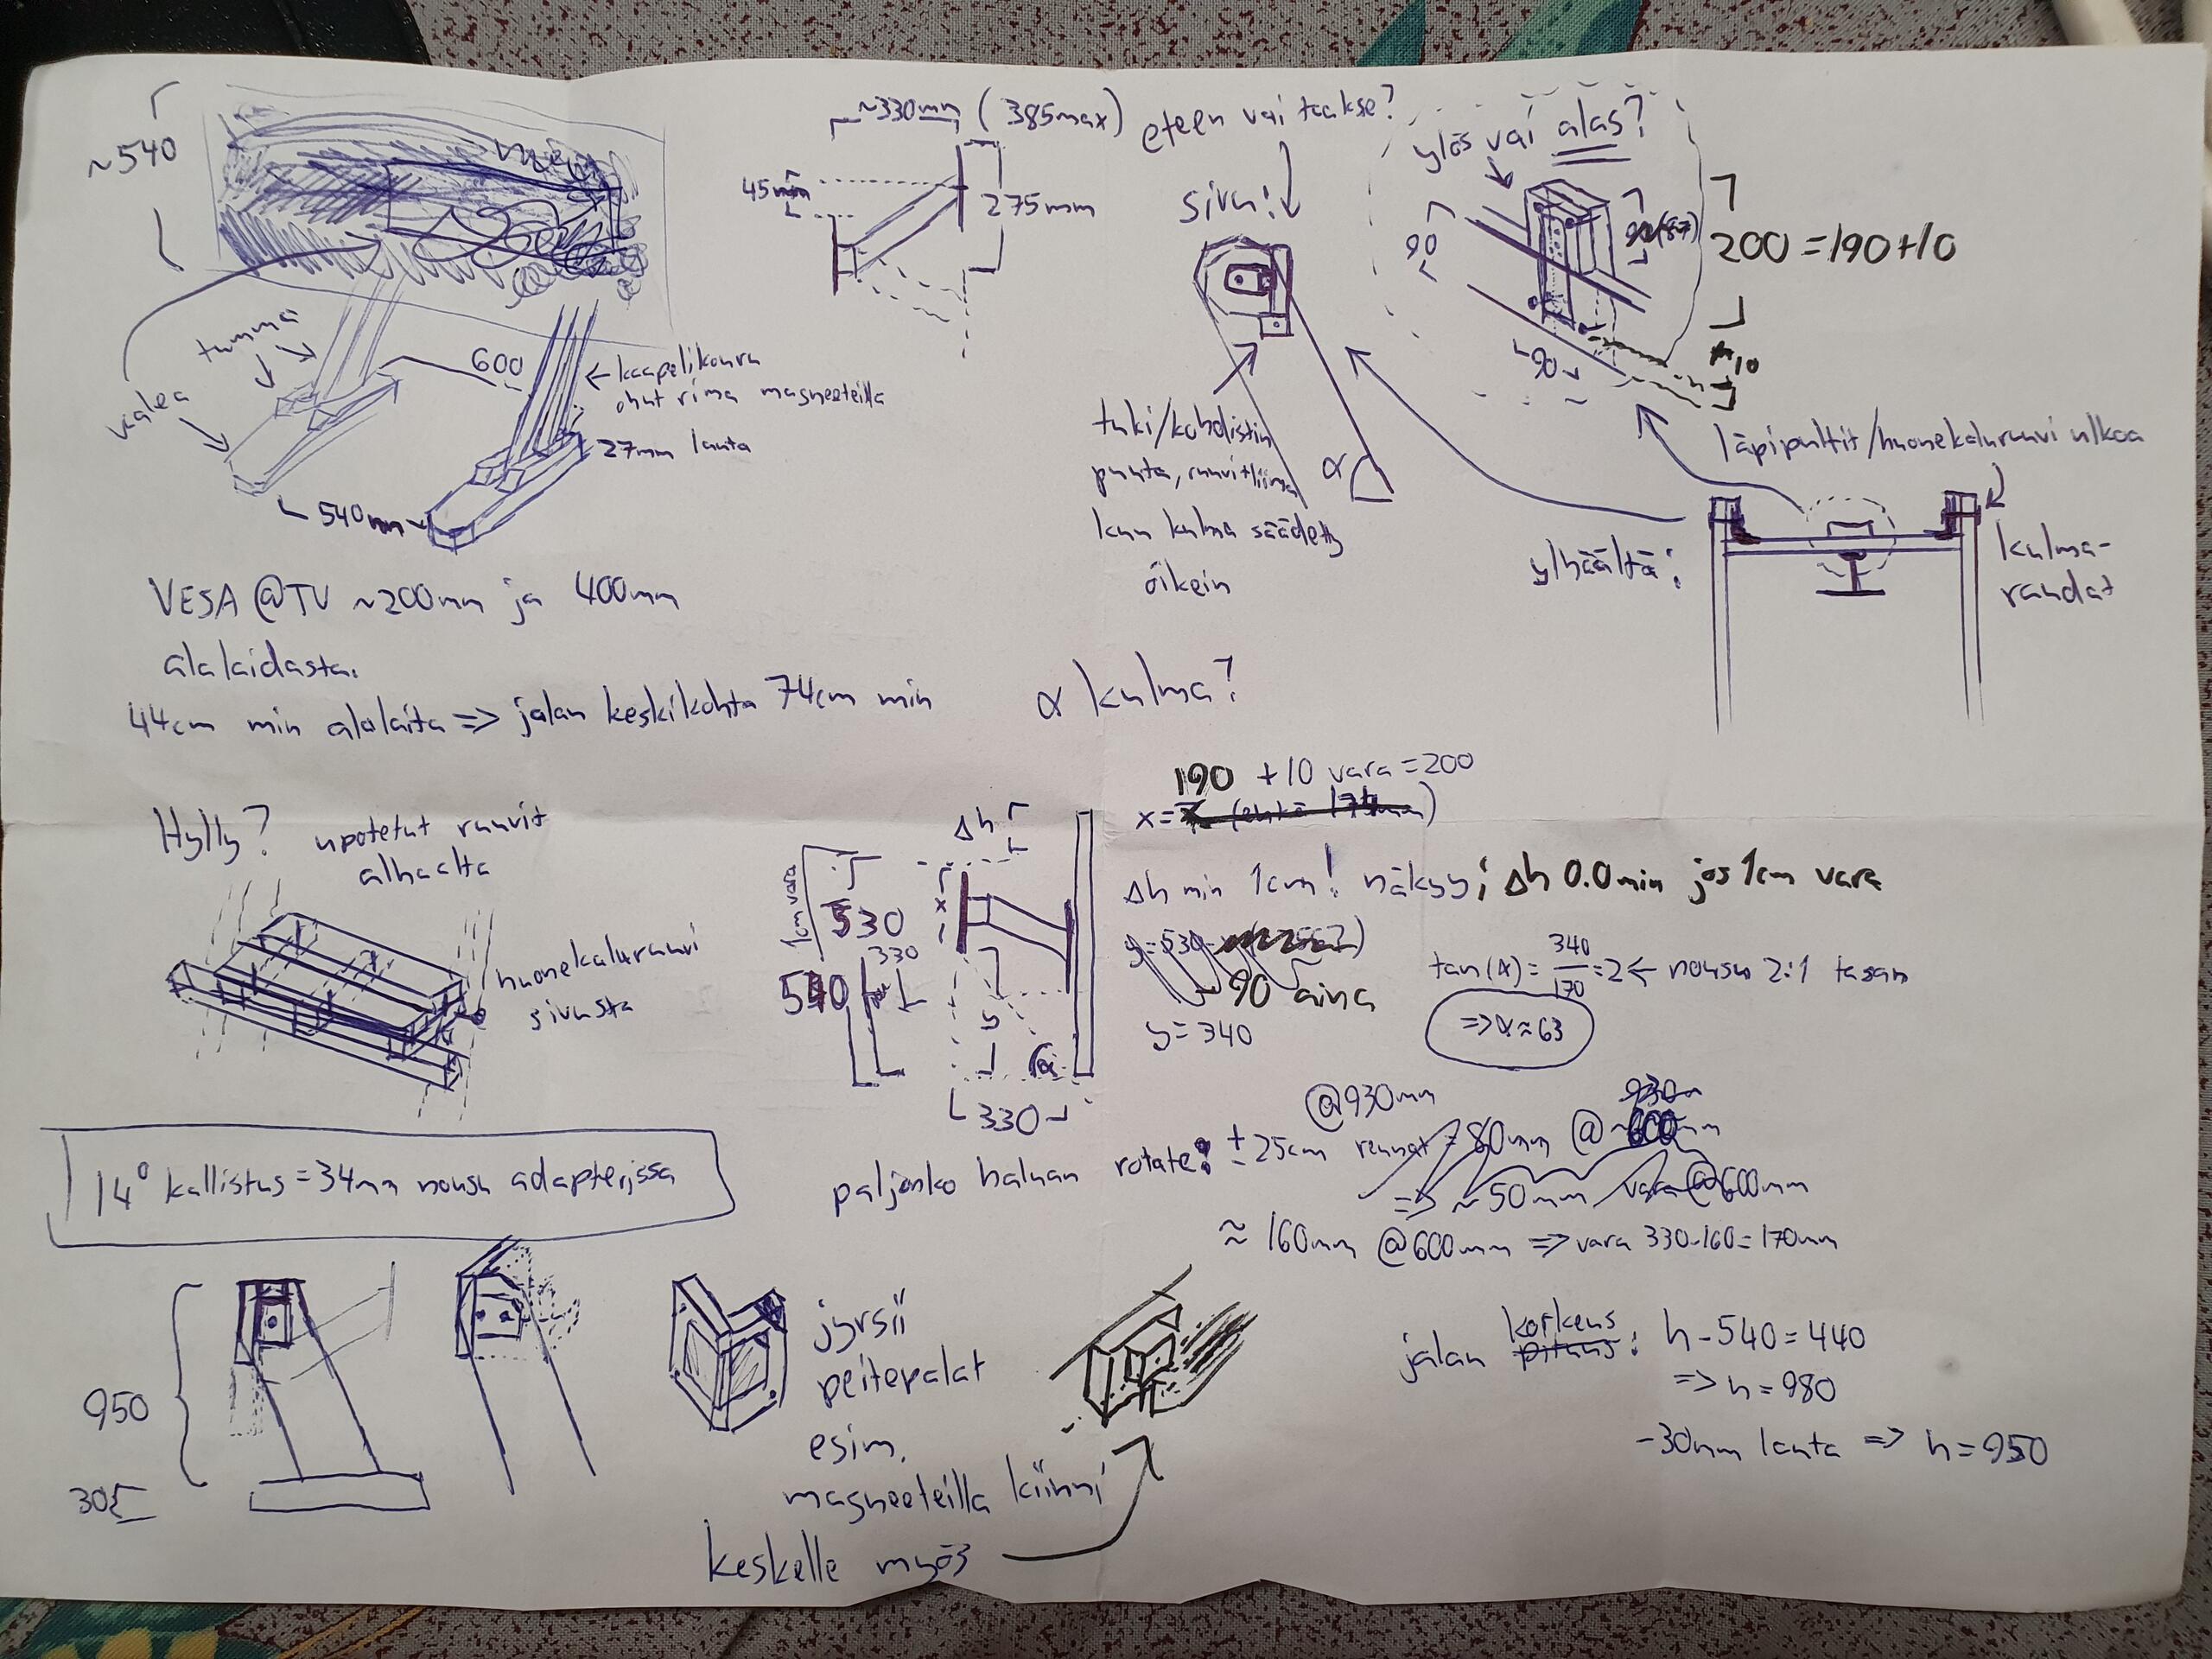 ~540
~330mm (385max)
45mm
275mm
eteen vai taakse?
sivu:
ylös vai alas?
90
(87)
200 = 190+10
10
90
tumma
valea
600
← kaapelikouru
ohut rima magneeteilla
27mm lauta
540mm
tuki/kohdistin
puuta, ruuvi+liima
kun kulma säädetty
oikein
α
läpipultit/huonekaluruuvi ulkoa
ylhäältä:
kulma-
raudat
VESA @TV ~200mm ja 400mm
alalaidasta.
44cm min alalaita => jalan keskikohta 74cm min
α kulma?
190 + 10 vara = 200
x=
Hylly? upotetut ruuvit
alhaalta
huonekaluruuvi
sivusta
Δh
1cm vara
530
330
540
x
y
α
330
Δh min 1cm! näkyy; Δh 0.0min jos 1cm vara
90 aina
y = 340
tan(α) = 340/170 = 2 ← nousu 2:1 tasan
=> α ≈ 63
14° kallistus = 34mm nousu adapterissa
@930mm
930m
paljonko haluan rotate? ± 25cm reunat 80mm @~600mm
=> ~50mm vara @600mm
≈ 160mm @600mm => vara 330-160 = 170mm
950
30
jyrsii
peitepalat
esim.
magneeteilla kiinni
keskelle myös
jalan korkeus pituus: h - 540 = 440
=> h = 980
-30mm lauta => h = 950